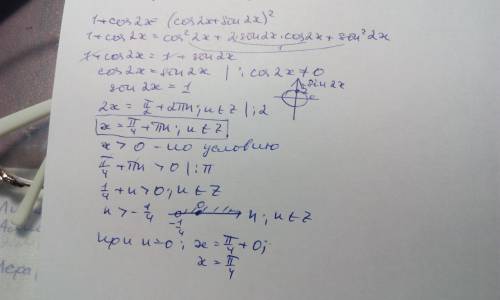 1+cos2x = (cos2x+sin2x)²
1+cos2x = cos²2x + 2·sin2x·cos2x + sin²2x
1
1+cos2x = 1 + sin2x
cos2x = sin2x | : cos2x ≠ 0
sin 2x
sin 2x = 1
2x = π/2 + 2πn; n∈Z |:2
x = π/4 + πn; n∈Z
x > 0 - по условию
π/4 + πn > 0 |:π
1/4 + n > 0; n∈Z
n > -1/4
-1/4 0 n; n∈Z
при n=0; x = π/4 + 0;
x = π/4